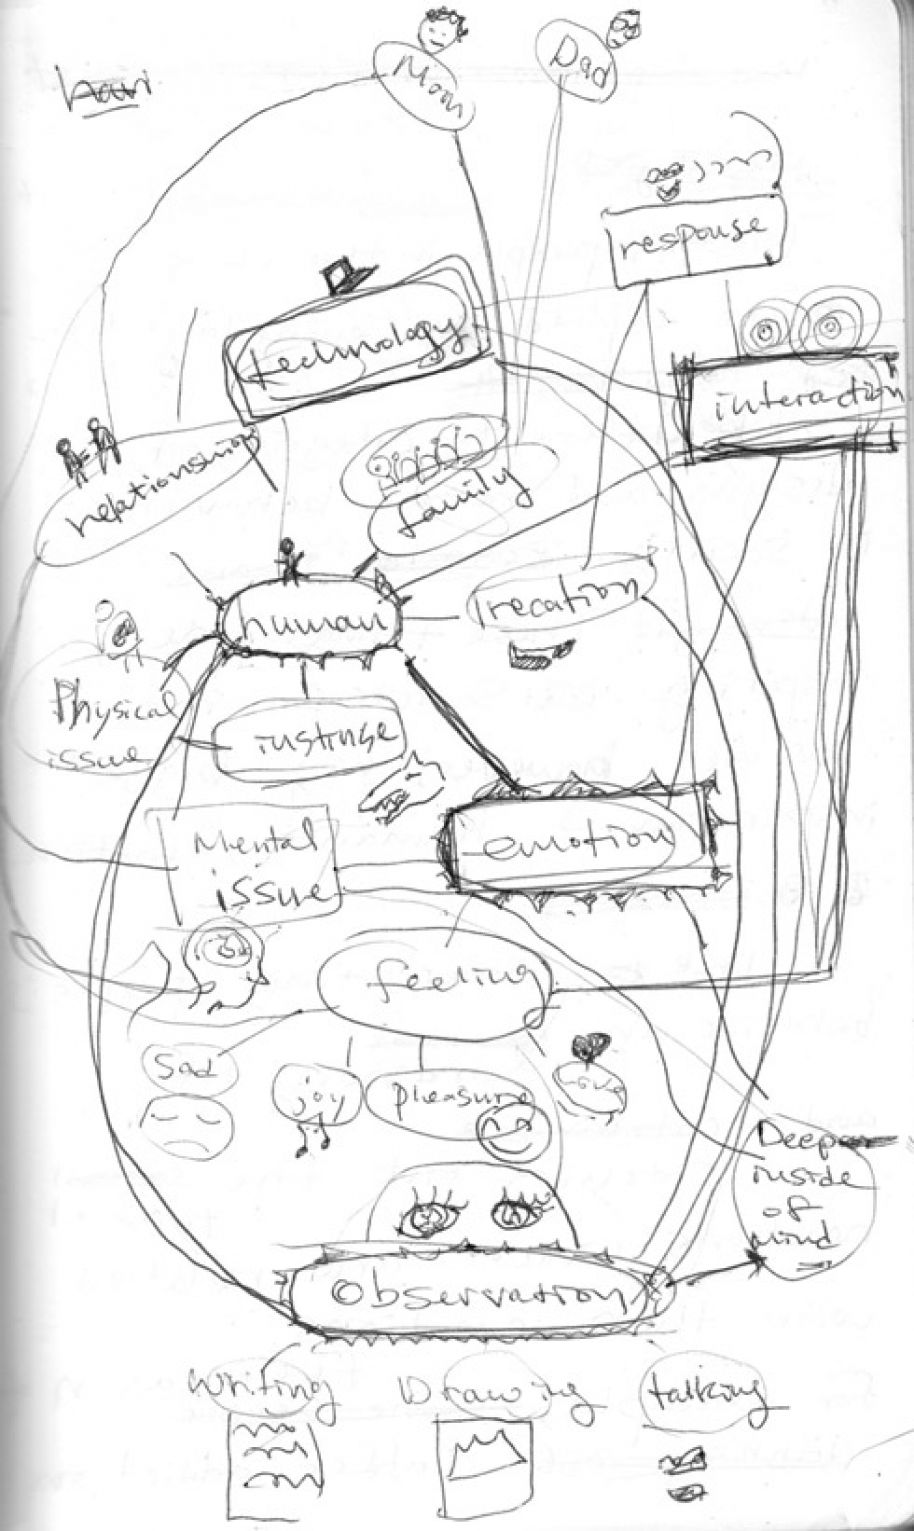 Mom
Dad
response
technology
interaction
relationship
family
human
recation
Physical
issue
instinse
Mental
issue
emotion
feeling
Sad
joy
pleasure
Love
Deep
inside
of
mind
observation
Writing
Drawing
talking